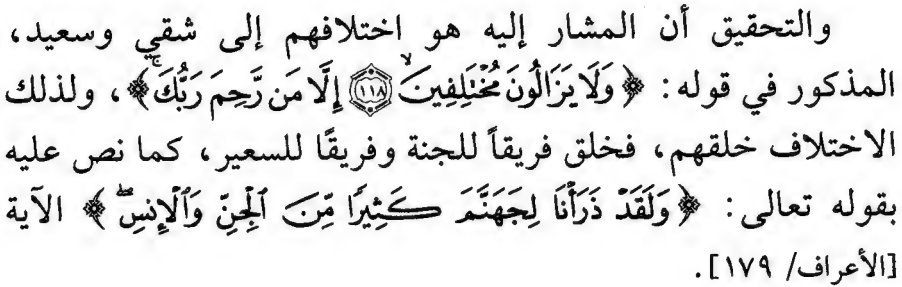 والتحقيق أن المشار إليه هو اختلافهم إلى شقي وسعيد،
المذكور في قوله: ﴿وَلَا يَزَالُونَ مُخْتَلِفِينَ ۙ ۝١١٨ إِلَّا مَن رَّحِمَ رَبُّكَ ۚ﴾، ولذلك
الاختلاف خلقهم، فخلق فريقاً للجنة وفريقًا للسعير، كما نص عليه
بقوله تعالى: ﴿وَلَقَدْ ذَرَأْنَا لِجَهَنَّمَ كَثِيرًا مِّنَ ٱلْجِنِّ وَٱلْإِنسِ ۖ﴾ الآية
[الأعراف/ ١٧٩].